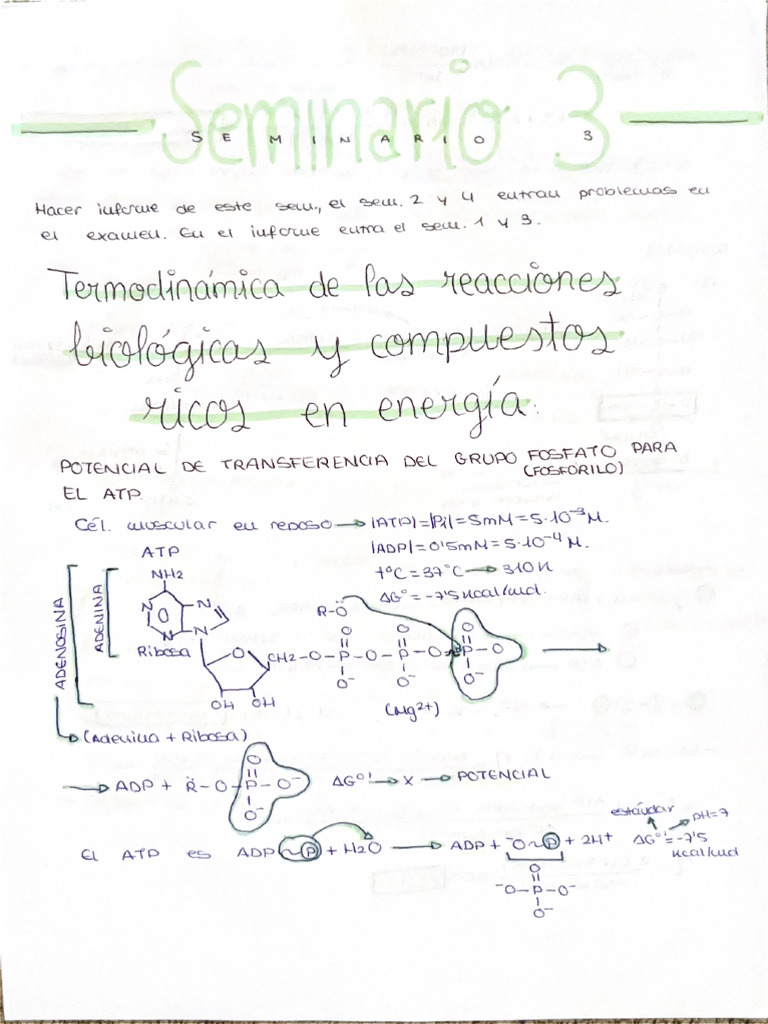 Seminario 3
SEMINARIO 3
Hacer informe de este sem., el sem. 2 y 4 entran problemas en
el examen. En el informe entra el sem. 1 y 3.
Termodinámica de las reacciones
biológicas y compuestos
ricos en energía:
POTENCIAL DE TRANSFERENCIA DEL GRUPO FOSFATO PARA
(FOSFORILO)
EL ATP.
Cél. muscular en reposo → |ATP|=|Pi|=5mM=5·10⁻³M.
|ADP|=0'5mM=5·10⁻⁴M.
tºC=37ºC → 310K
ΔGº'=-7'5 Kcal/mol.
ATP
NH2
ADENOSINA
ADENINA
N N N N
Ribosa
O
OH OH
R-Ö
CH2-O-P-O-P-O-P-O
O O O
O⁻ O⁻ O⁻
(Mg2+)
(Adenina + Ribosa)
→ ADP + R̈-O-P-O⁻ ΔGº' → x → POTENCIAL
O
O⁻
estándar
pH=7
El ATP es ADP~P + H2O → ADP + ⁻O~P + 2H+ ΔGº'=-7'5
Kcal/mol
O
⁻O-P-O⁻
O⁻